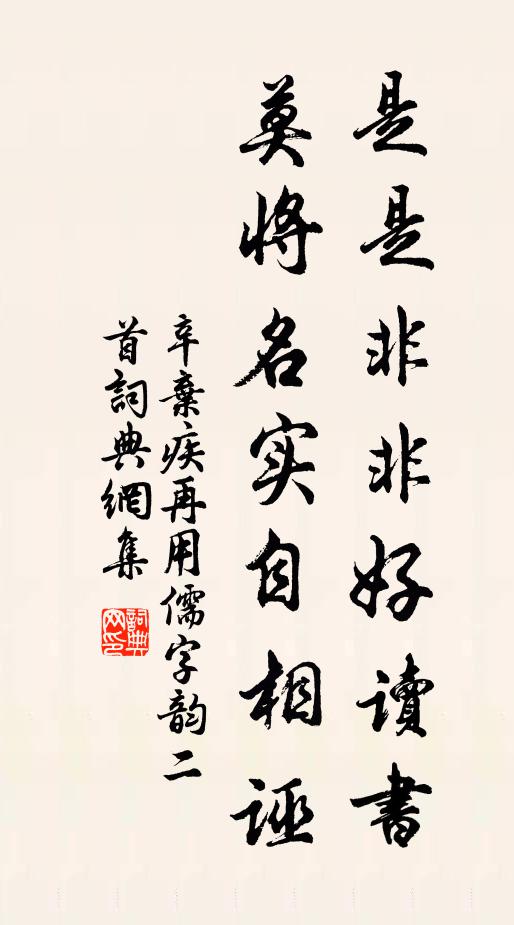 是是非非好讀書
莫將名实自相誣
辛棄疾再用儒字韵二
首詞典網集
詞典
网印